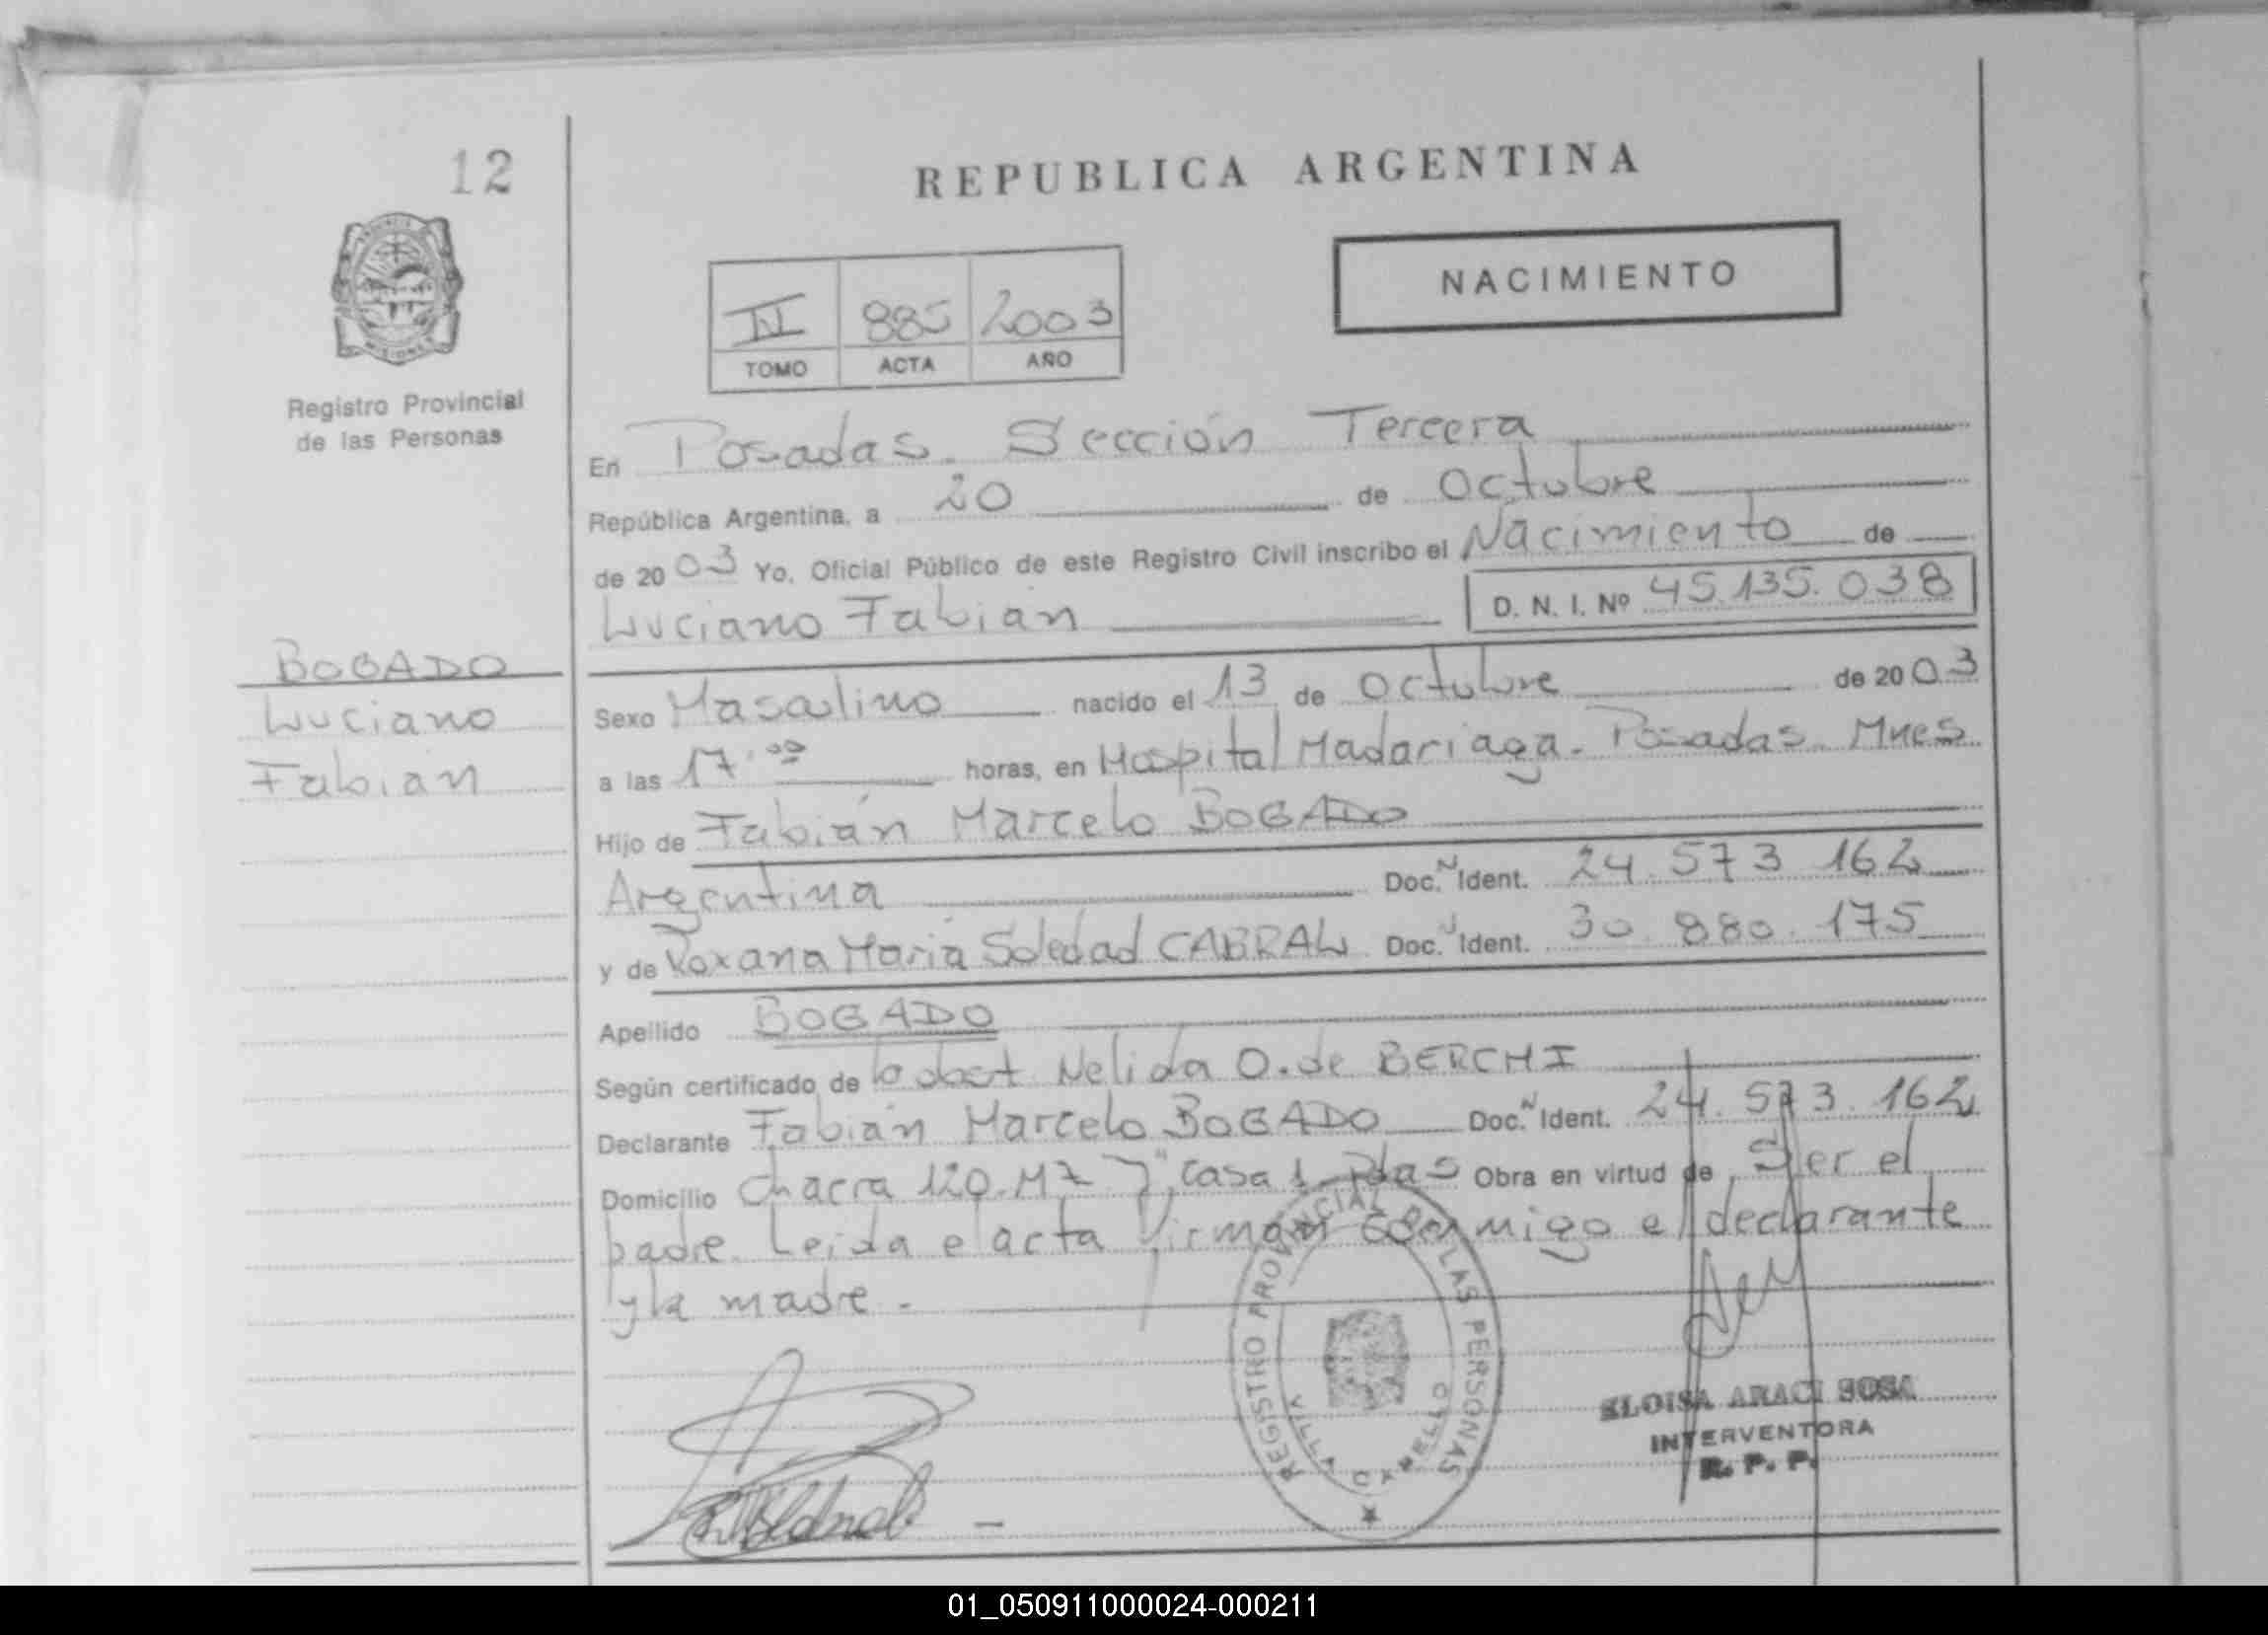 12
REPUBLICA ARGENTINA
NACIMIENTO
885 2003
TOMO ACTA AÑO
MISIONES
Registro Provincial
de las Personas
En Posadas. Sección Tercera
República Argentina, a 20 de Octubre
de 2003 Yo, Oficial Público de este Registro Civil inscribo el Nacimiento de
Luciano Fabián D. N. I. Nº 45.135.038
BOGADO
Luciano
Fabián
Sexo Masculino nacido el 13 de Octubre de 2003
a las 17.00 horas, en Hospital Madariaga. Posadas. Mnes
Hijo de Fabián Marcelo BOGADO
Argentina Doc.N Ident. 24.573.162
y de Roxana María Soledad CABRAL Doc. Ident. 30.880.175
Apellido BOGADO
Según certificado de la obst Nelida O. de BERCHI
Declarante Fabián Marcelo BOGADO Doc.N Ident. 24.573.162
Domicilio Chacra 120. Mz casa 1. Pdas Obra en virtud de Ser el
padre. Leida el acta firman conmigo el declarante
y la madre.
REGISTRO PROVINCIAL DE LAS PERSONAS
VILLA CABELLO
ELOISA ARACI SOSA
INTERVENTORA
R. P. P.
01_050911000024-000211